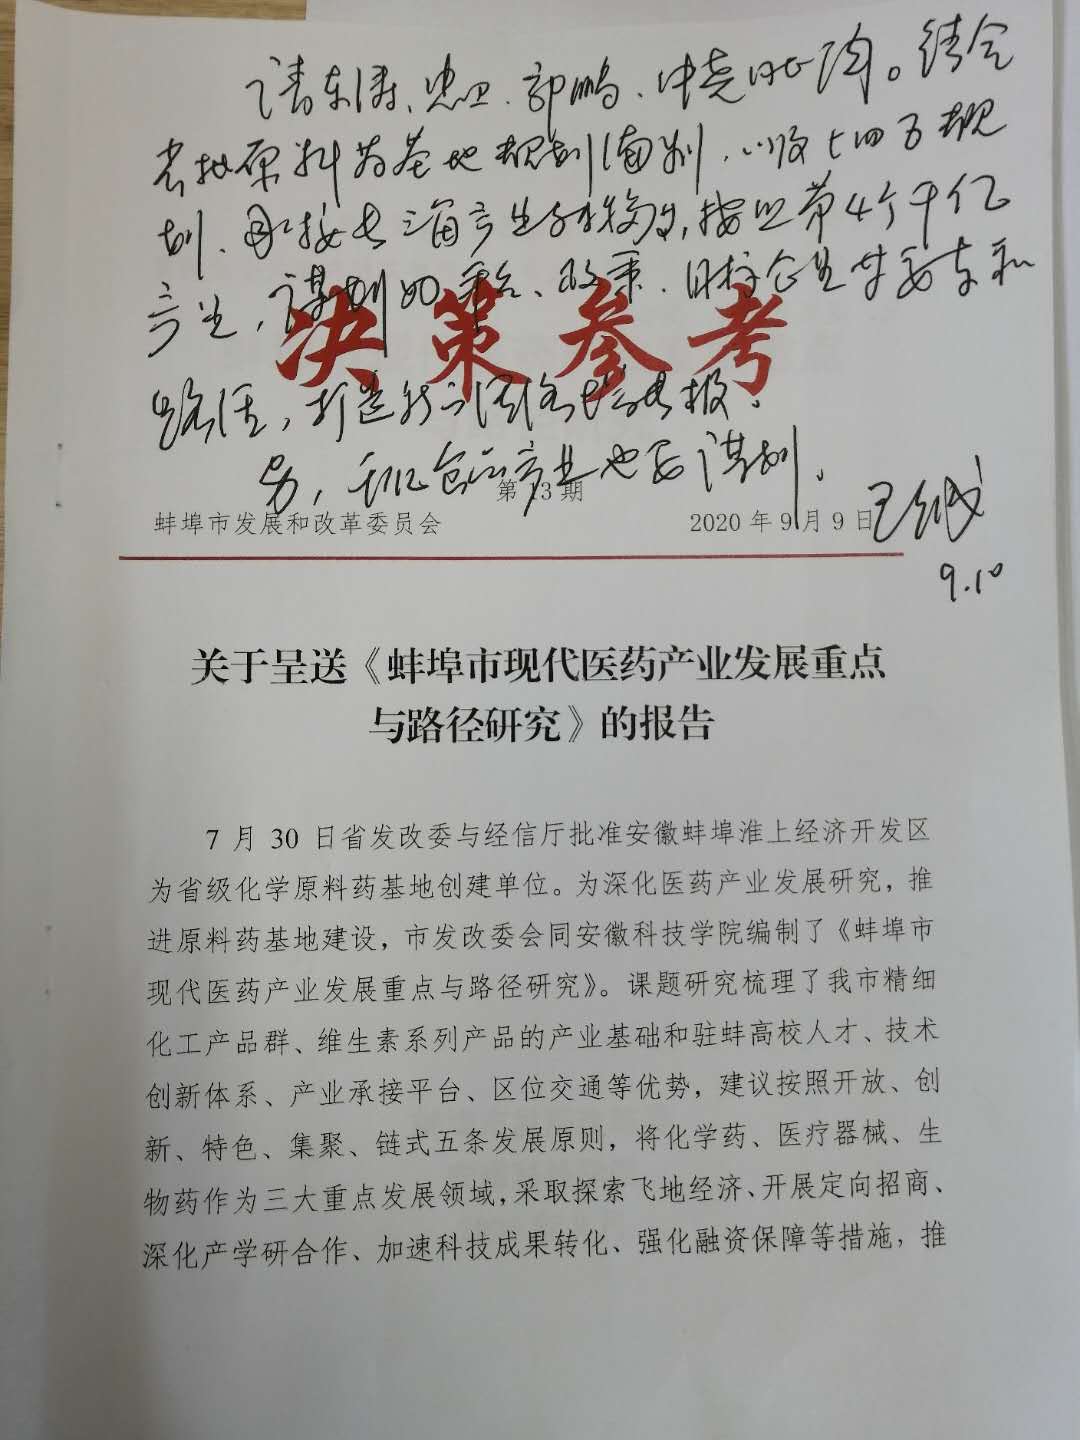 请东涛、忠卫、郭鹏、中尧同志阅。结合
省批原料药基地规划编制、以及十四五规
划、承接长三角产业转移,按照第4个千亿
产业,谋划好平台、政策、目标企业等要素和
路径,打造
另,千亿食品产业也要谋划。
决策参考
第13期
蚌埠市发展和改革委员会 2020年9月9日
9.10
关于呈送《蚌埠市现代医药产业发展重点
与路径研究》的报告
7月30日省发改委与经信厅批准安徽蚌埠淮上经济开发区
为省级化学原料药基地创建单位。为深化医药产业发展研究,推
进原料药基地建设,市发改委会同安徽科技学院编制了《蚌埠市
现代医药产业发展重点与路径研究》。课题研究梳理了我市精细
化工产品群、维生素系列产品的产业基础和驻蚌高校人才、技术
创新体系、产业承接平台、区位交通等优势,建议按照开放、创
新、特色、集聚、链式五条发展原则,将化学药、医疗器械、生
物药作为三大重点发展领域,采取探索飞地经济、开展定向招商、
深化产学研合作、加速科技成果转化、强化融资保障等措施,推